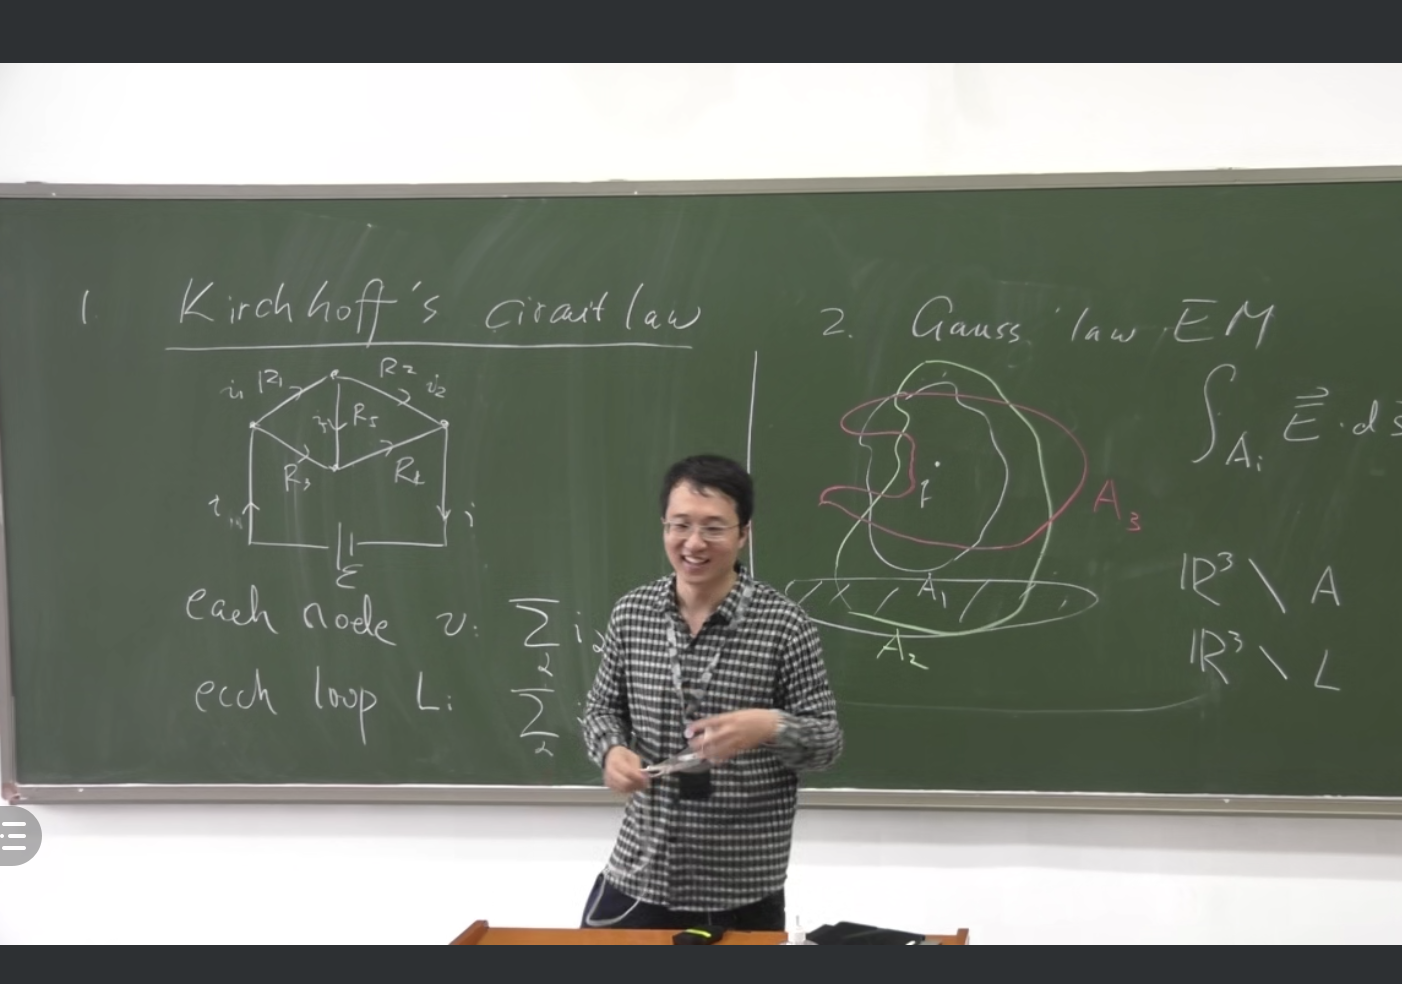 1. Kirchhoff's circuit law
i₁ R₁ R₂ i₂
i₅ R₅
R₃ R₄
iᵢₙ i
ε
each node v: ∑ i₂
2
each loop L: ∑ i
2
2. Gauss' law EM
∫_{Aᵢ} E⃗ · ds
q
A₃
A₁
A₂
ℝ³ \ A
ℝ³ \ L